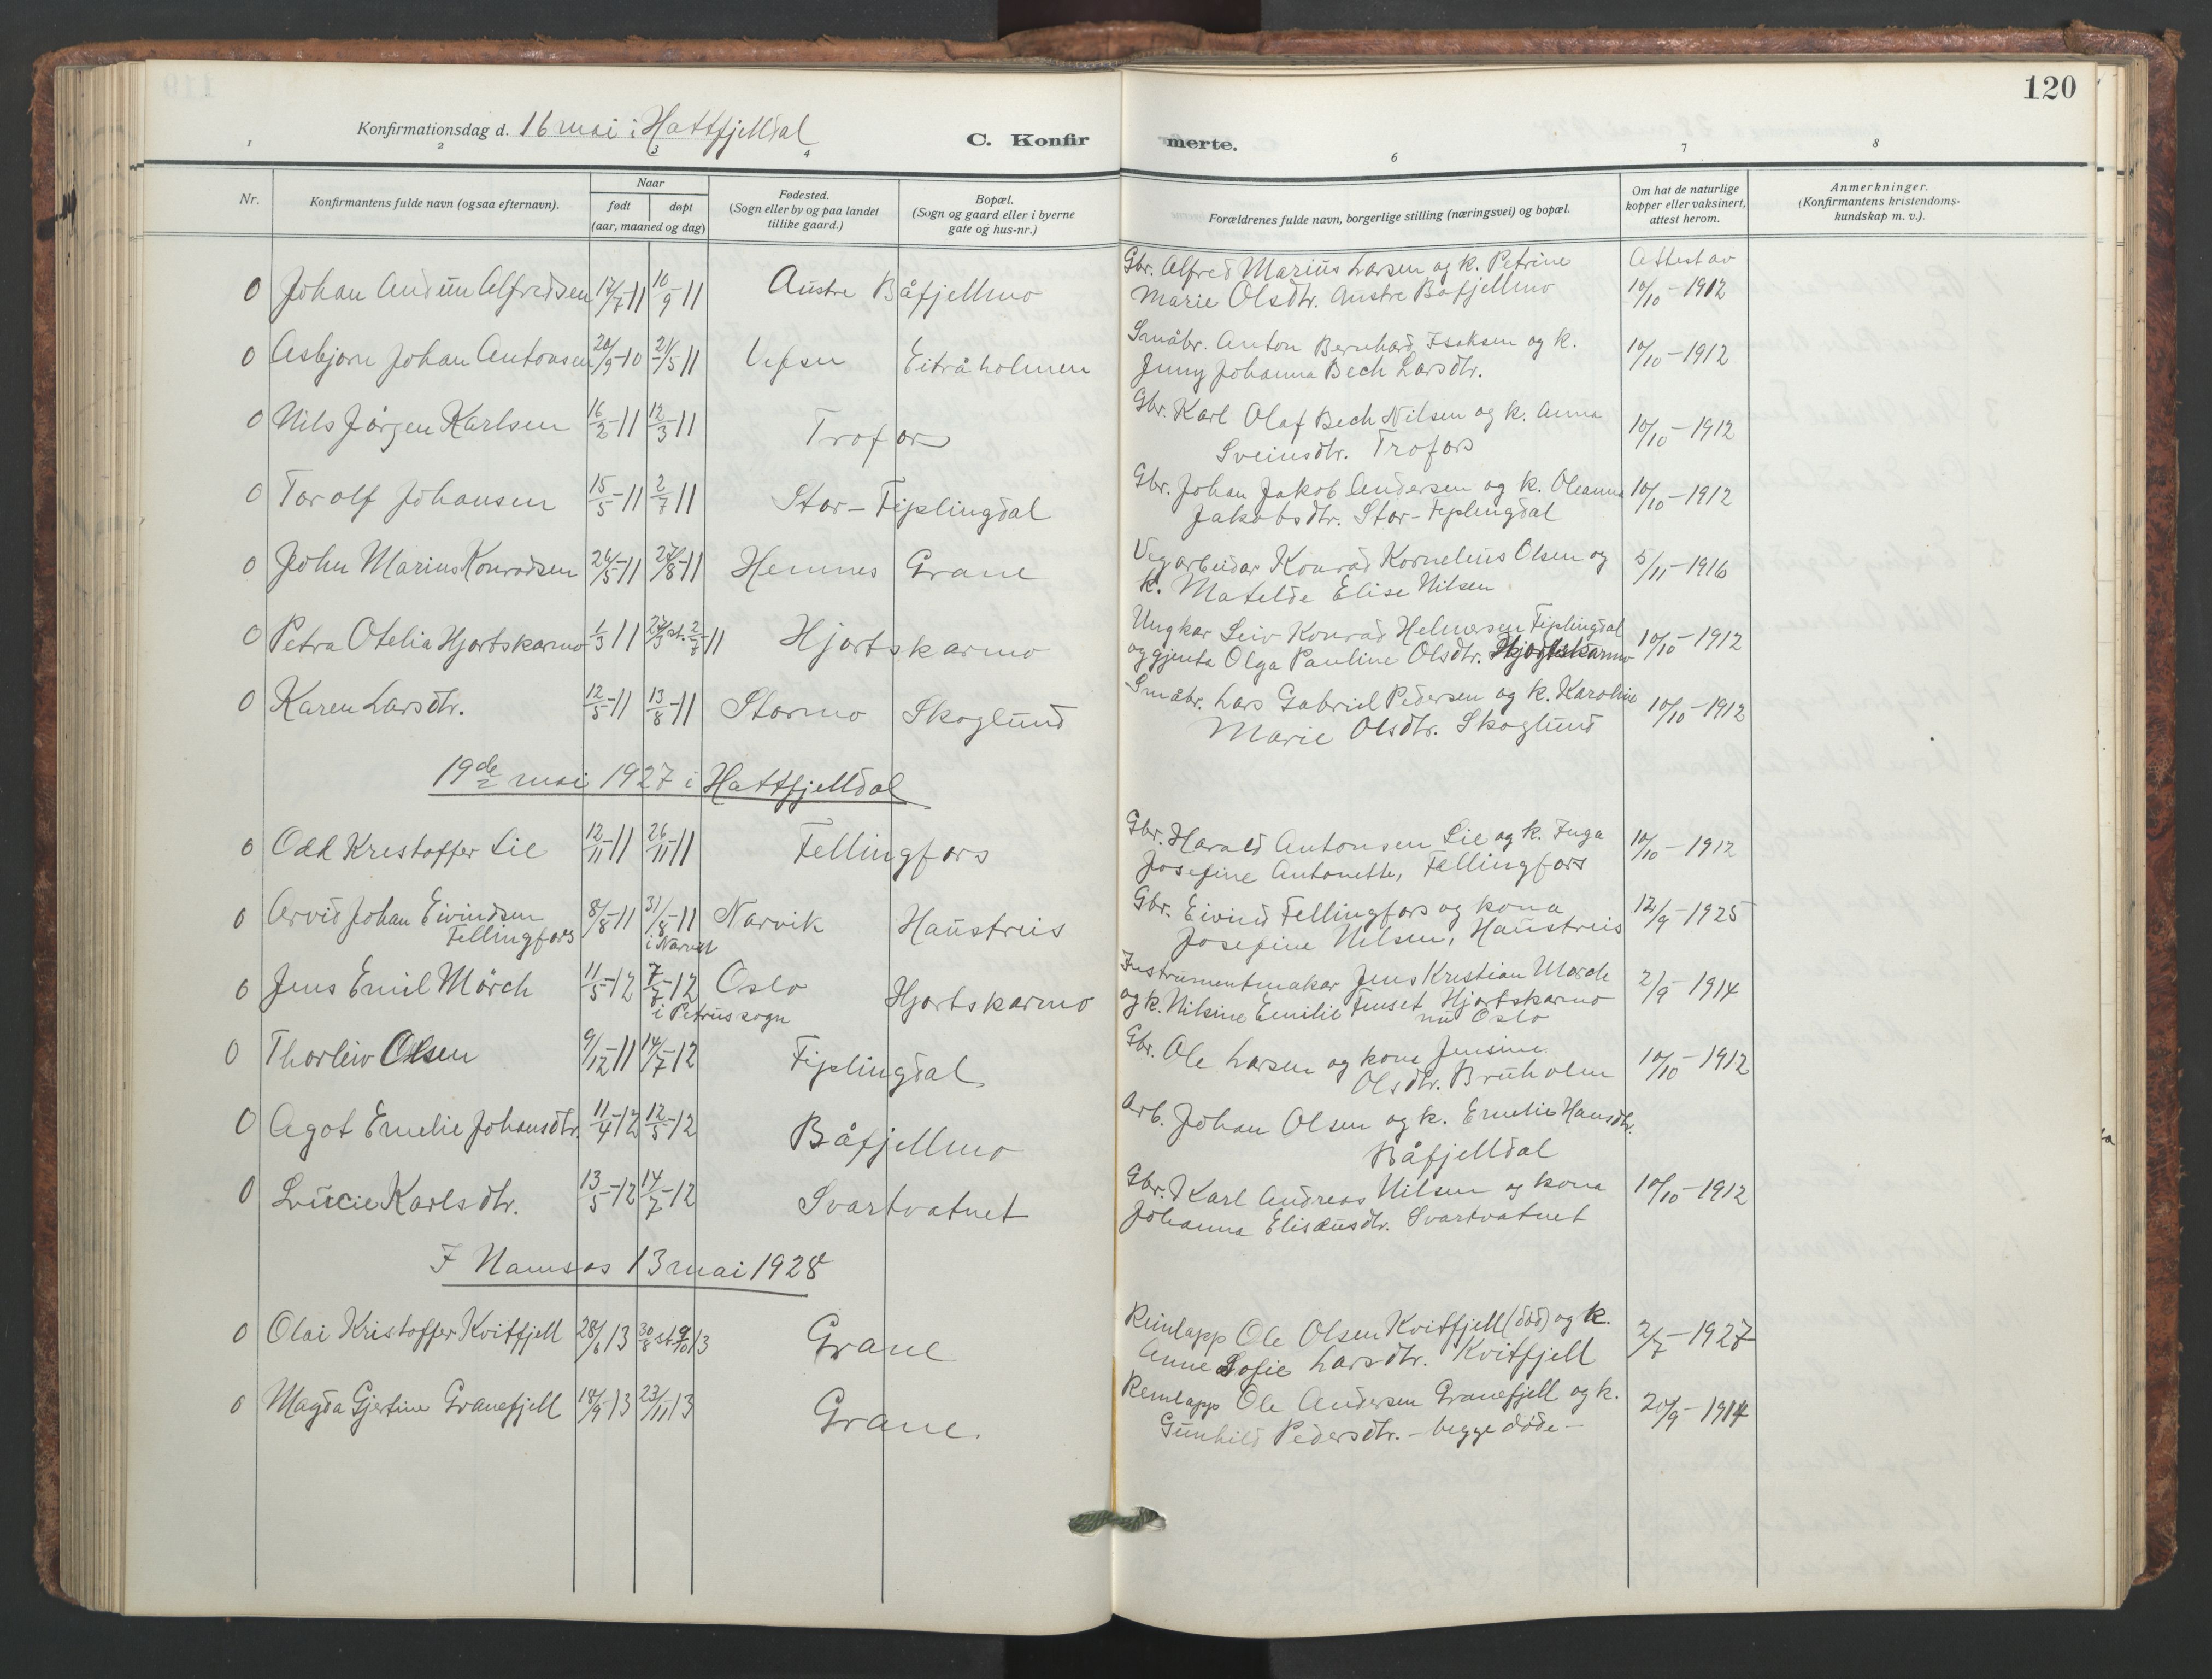 120
Konfirmationsdag d. 16 mai i Hattfjelldal
C. Konfirmerte.
1 2 3 4 6 7 8
Nr.
Konfirmantens fulde navn (ogsaa efternavn).
Naar
født døpt
(aar, maaned og dag)
Fødested.
(Sogn eller by og paa landet
tillike gaard.)
Bopæl.
(Sogn og gaard eller i byerne
gate og hus-nr.)
Forældrenes fulde navn, borgerlige stilling (næringsvei) og bopæl.
Om hat de naturlige
kopper eller vaksinert,
attest herom.
Anmerkninger.
(Konfirmantens kristendoms-
kundskap m. v.).
0 Johan Audun Alfredsen 17/7-11 10/9-11 Austre Båfjellmo Gbr. Alfred Marius Larsen og k. Petrine Attest av
Marie Olsdtr. Austre Båfjellmo 10/10-1912
0 Asbjørn Johan Antonsen 20/9-10 21/5-11 Vefsn Eiteråholmen Småbr. Anton Bernhard Isaksen og k. 10/10-1912
Jenny Johanna Bech Larsdtr.
0 Nils Jørgen Karlsen 16/2-11 12/3-11 Trofors Gbr. Karl Olaf Bech Nilsen og k. Anna 10/10-1912
Sveinsdtr. Trofors
0 Torolf Johansen 15/5-11 2/7-11 Stor-Fiplingdal Gbr. Johan Jakob Andersen og k. Oleanna 10/10-1912
Jakobsdtr. Stor-Fiplingdal
0 John Marius Konradsen 26/5-11 27/8-11 Hemnes Grane Vegarbeidar Konrad Kornelius Olsen og 5/11-1916
k. Matelde Elise Nilsen
0 Petra Otelia Hjortskarmo 1/3 11 27/3 st. 2/7-11 Hjortskarmo Ungkar Leiv Konrad Helmersen Fiplingdal 10/10-1912
og gjenta Olga Pauline Olsdtr. Hjortskarmo
0 Karen Larsdtr. 12/5-11 13/8-11 Stormo Skoglund Småbr. Lars Gabriel Pedersen og k. Karoline 10/10-1912
Marie Olsdtr. Skoglund
19de mai 1927 i Hattfjelldal
0 Odd Kristoffer Lie 12/11-11 26/11-11 Fellingfors Gbr. Harald Antonsen Lie og k. Inga 10/10-1912
Josefine Antonette, Fellingfors
0 Arvid Johan Eivindsen 8/8-11 31/8-11 Narvik Haustreis Gbr. Eivind Fellingfors og kona 12/9-1925
Fellingfors i Narvik Josefine Nilsen, Haustreis
0 Jens Emil Mörch 11/5-12 7/7-12 Oslo Hjortskarmo Instrumentmakar Jens Kristian Mörch 2/9-1914
i Petrus sogn og k. Nilsine Emilie Hjortskarmo
nu Oslo
0 Thorleiv Olsen 9/12-11 14/7-12 Fiplingdal Gbr. Ole Larsen og kona Jensine 10/10-1912
Olsdtr. Bruholm
0 Agot Emelie Johansdtr. 11/4-12 12/5-12 Båfjellmo Arb. Johan Olsen og k. Emelie Hansdtr.
Båfjelldal
0 Lucie Karlsdtr. 13/5-12 14/7-12 Svartvatnet Gbr. Karl Andreas Nilsen og kona 10/10-1912
Johanna Eliseusdtr. Svartvatnet
I Namsos 13 mai 1928
0 Olai Kristoffer Kvitfjell 28/6 13 30/8 st. 9/10 13 Grane Reinlapp Ole Olsen Kvitfjell (död) og k. 2/7-1927
Anne Sofie Larsdtr. Kvitfjell
0 Magda Gjertine Granefjell 18/9-13 23/11 13 Grane. Reinlapp Ole Andersen Granefjell og k. 20/9-1914
Gunhild Pedersdtr. - begge døde -